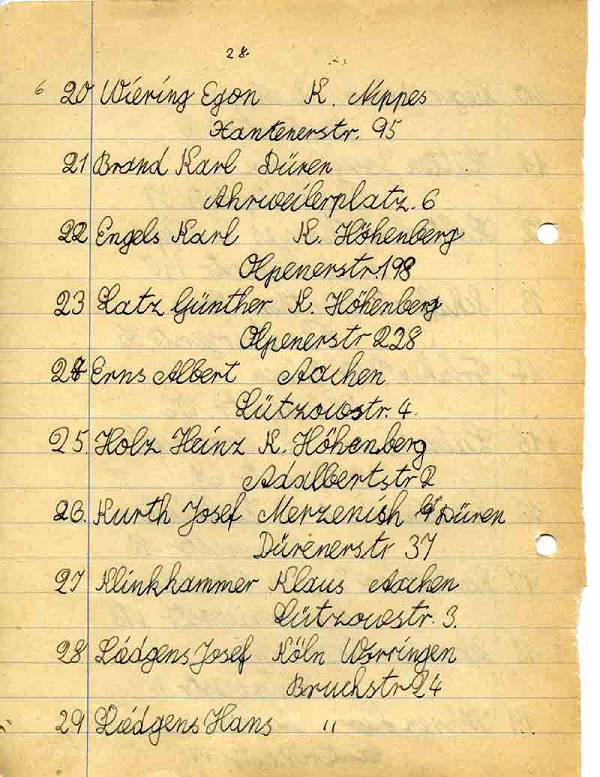 28.
6 20 Wiering Egon K. Nippes
Xantenerstr. 95
21 Brand Karl Düren
Ahrweilerplatz. 6
22 Engels Karl K. Höhenberg
Olpenerstr 198
23 Latz Günther K. Höhenberg
Olpenerstr 228
24 Erns Albert Aachen
Lützowstr. 4.
25. Holz Heinz K. Höhenberg
Adalbertstr 2
26. Kurth Josef Merzenich b/ Düren
Dürenerstr 37
27 Klinkhammer Klaus Aachen
Lützowstr. 3.
28 Lödgens Josef Köln Worringen
Bruchstr 24
29 Lödgens Hans "